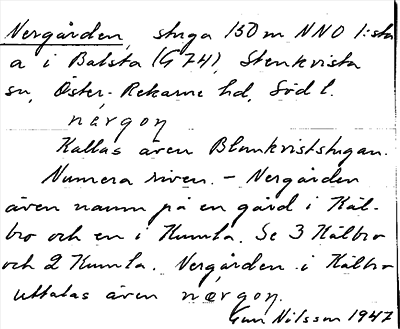 Nergården, stuga 150 m NNO 1:sta
a i Balsta (G 74), Stenkvista
sn, Öster-Rekarne hd, Södl.
nærgon
Kallas även Blomkviststugan.
Numera riven. - Nergården
även namn på en gård i Käl-
bro och en i Kumla. Se 3 Kälbro
och 2 Kumla. Nergården i Kälbro
uttalas även nærgon.
Gun Nilsson 1947